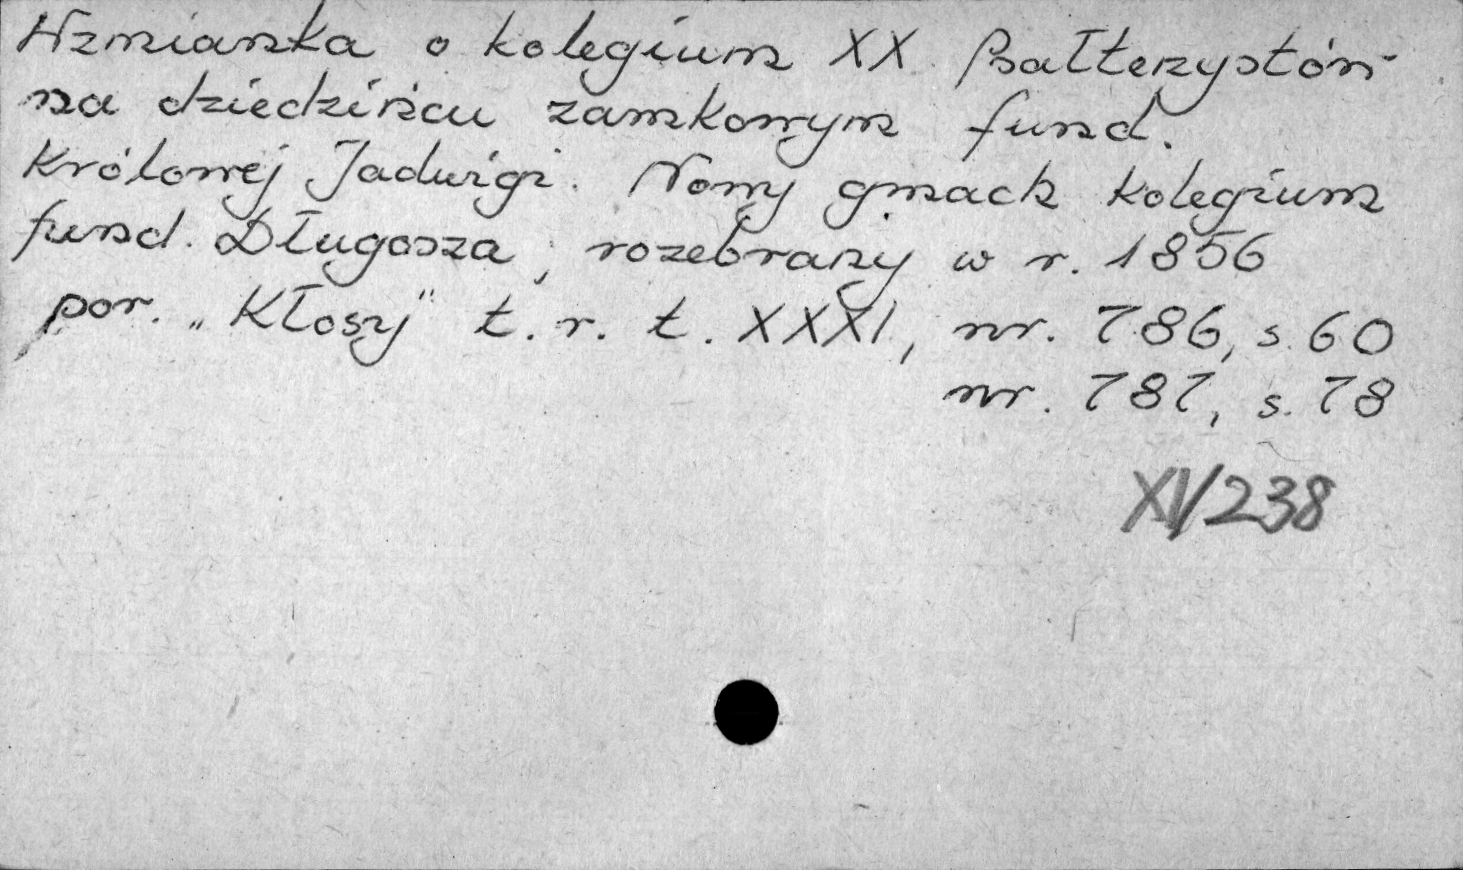 Wzmianka o kolegium XX Psałterzystów
na dziedzińcu zamkowym fund.
Królowej Jadwigi. Nowy gmach kolegium
fund. Długosza, rozebrany w r. 1856
por. „Kłosy" t. r. t. XXXI, nr. 786, s. 60
nr. 787, s. 78
XV/238